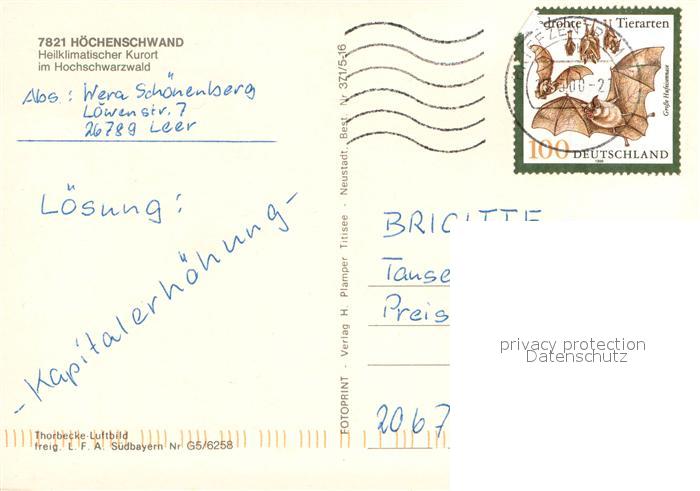 7821 HÖCHENSCHWAND
Heilklimatischer Kurort
im Hochschwarzwald
Abs.: Wera Schönenberg
Löwenstr. 7
26789 Leer
Lösung:
-Kapitalerhöhung-
Thorbecke-Luftbild
freig. L. F. A. Südbayern Nr G5/6258
FOTOPRINT - Verlag H. Plamper Titisee - Neustadt, Best. Nr 371/5-16
edrohte Tierarten
Große Hufeisennase
100 DEUTSCHLAND
1999
BRIGITTE
Tause
Preis
2067
privacy protection
Datenschutz